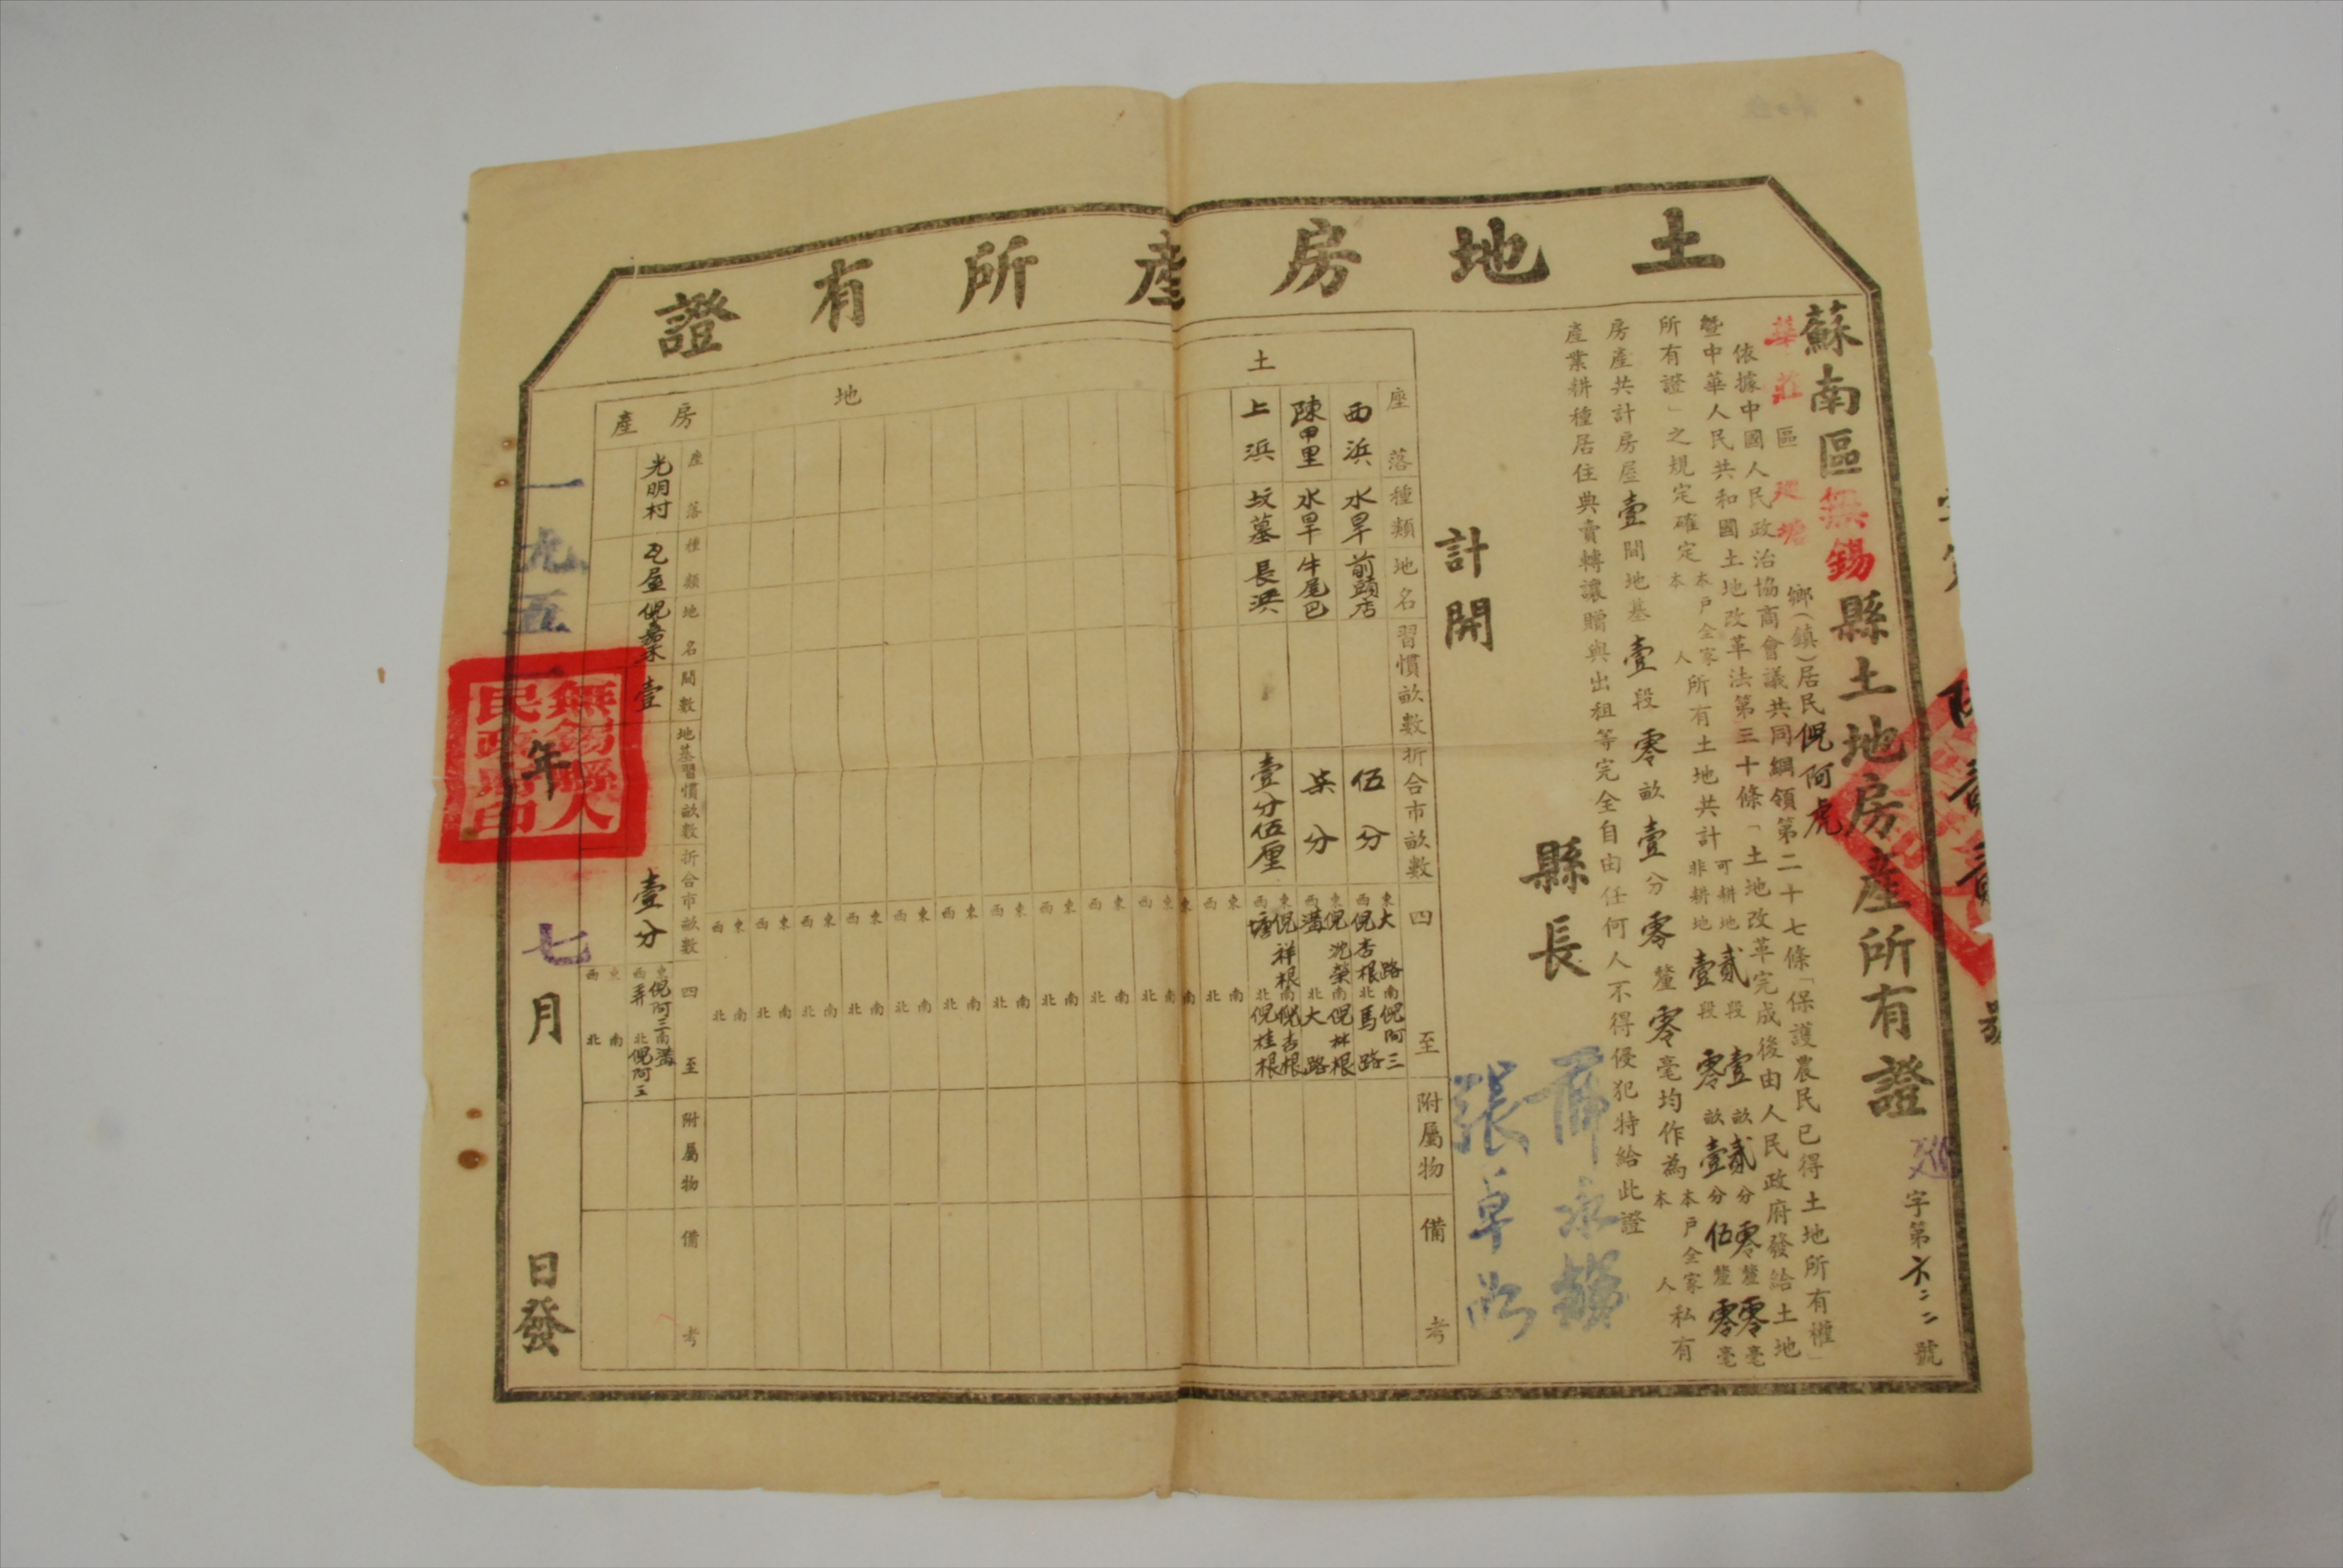 土地房產所有證
蘇南區無錫縣土地房產所有證
字第六二二號
華莊區 鄉(鎮)居民倪阿虎
依據中國人民政治協商會議共同綱領第二十七條「保護農民已得土地所有權」
暨中華人民共和國土地改革法第三十條「土地改革完成後由人民政府發給土地
所有證」之規定確定本戶全家本人所有土地共計可耕地貳段壹畝貳分零釐零毫非耕地壹段零畝壹分伍釐零毫
房產共計房屋壹間地基壹段零畝壹分零釐零毫均作為本戶全家本人私有
產業耕種居住典賣轉讓贈與出租等完全自由任何人不得侵犯特給此證
縣長
計開
土地
座落 種類 地名 習慣畝數 折合市畝數 四至 附屬物 備考
西浜 水旱 前頭店 伍分 東大路 西倪杏根 南倪阿三 北馬路
陳甲里 水旱 牛尾巴 柒分 東倪沈榮 西溝 南倪林根 北大路
上浜 坟墓 長浜 壹分伍厘 東倪祥根 西塘 南倪杏根 北倪桂根
房產
座落 種類 地名 間數 地基習慣畝數 折合市畝數 四至 附屬物 備考
光明村 瓦屋 壹 壹分 東倪阿三 西弄 南溝 北倪阿三
一九五一年七月 日發
無錫縣人民政府印